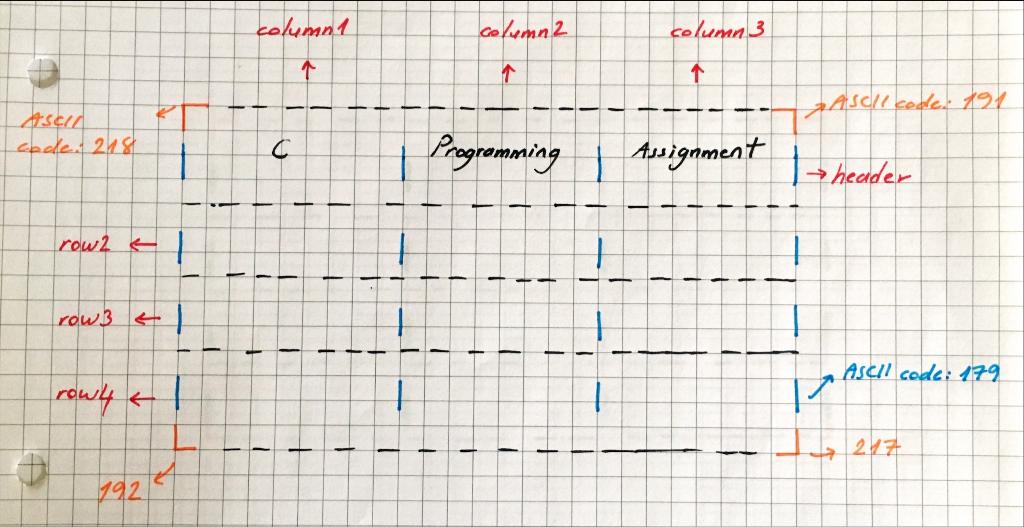 column1 column2 column3
ASCII
code: 218
ASCII code: 191
C Programming Assignment
header
row2
row3
row4
ASCII code: 179
217
192